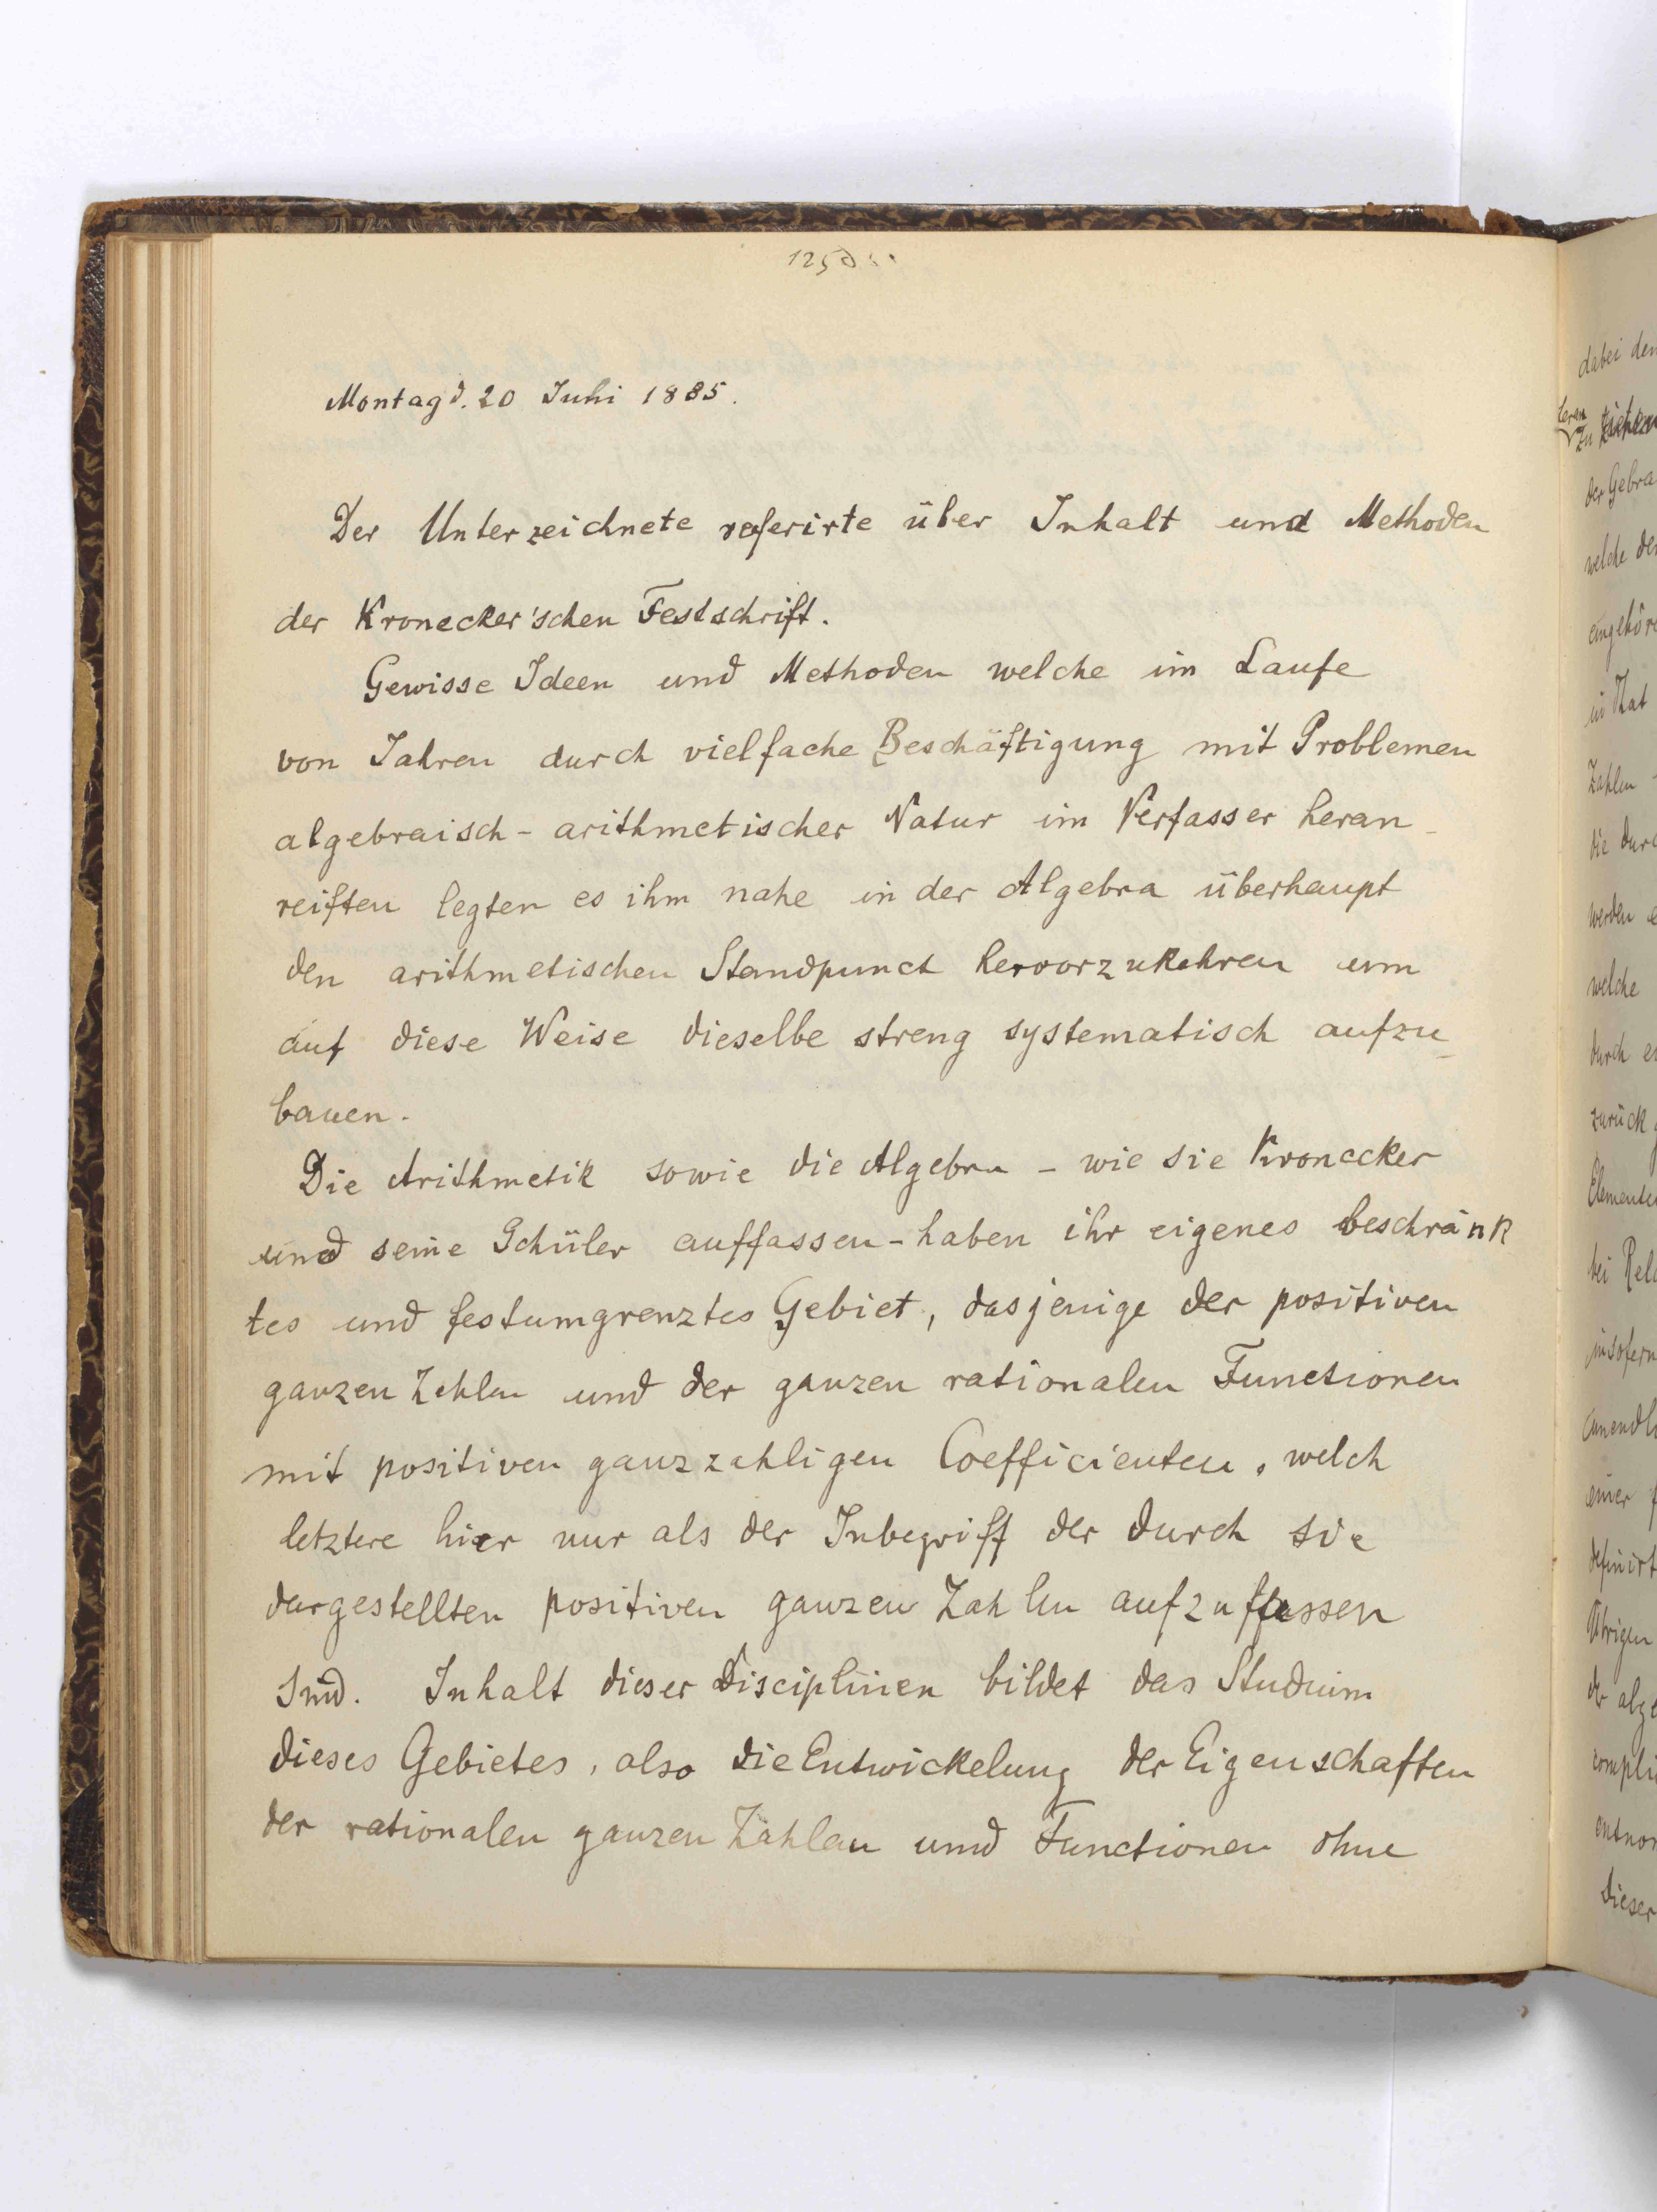 Montag d. 20 Juli 1885.
Der Unterzeichnete referirte über Inhalt und Methoden
der Kronecker'schen Festschrift.
Gewisse Ideen und Methoden welche im Laufe
von Jahren durch vielfache Beschäftigung mit Problemen
algebraisch-arithmetischer Natur im Verfasser heran-
reiften legten es ihm nahe in der Algebra überhaupt
den arithmetischen Standpunct hervorzukehren um
auf diese Weise dieselbe streng systematisch aufzu-
bauen.
Die Arithmetik sowie die Algebra - wie sie Kronecker
und seine Schüler auffassen - haben ihr eigenes beschränk
tes und festumgrenztes Gebiet, dasjenige der positiven
ganzen Zahlen und der ganzen rationalen Functionen
mit positiven ganzzahligen Coefficienten, welch
letztere hier nur als der Inbegriff der durch sie
dargestellten positiven ganzen Zahlen aufzufassen
sind. Inhalt dieser Disciplinen bildet das Studium
dieses Gebietes, also die Entwickelung der Eigenschaften
der rationalen ganzen Zahlen und Functionen ohne
dabei den
heran
zu
der Gebra
welche der
in That
Zahlen
die durc
werden e
welche
durch ei
zurück
Elemente
bei Rel
insofern
unendl
einer f
definirt
Übrigen
der alge
compli
entnom
dieser